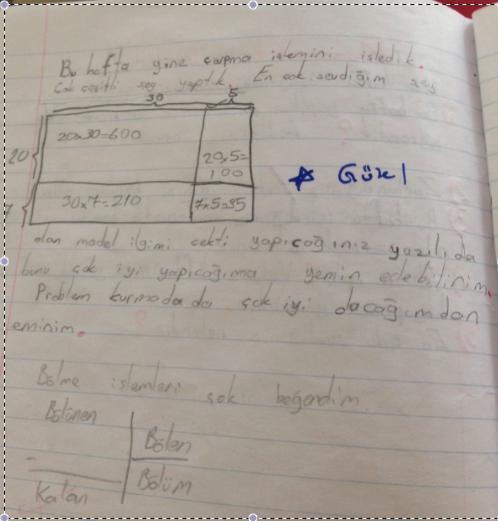 Bu hafta yine çarpma işlemini işledik.
Çok çeşitli şey yaptık. En çok sevdiğim şey
30 5
20x30=600
20
20x5=
100
★ Güzel
7 30x7=210 7x5=35
olan model ilgimi çekti yapıcoğınız yazılıda
bunu çok iyi yapıcoğıma yemin edebilirim.
Problem kurmada da çok iyi olacoğımdan
eminim.
Bölme işlemleri çok beğendim.
Bölünen
Bölen
Kalan Bölüm